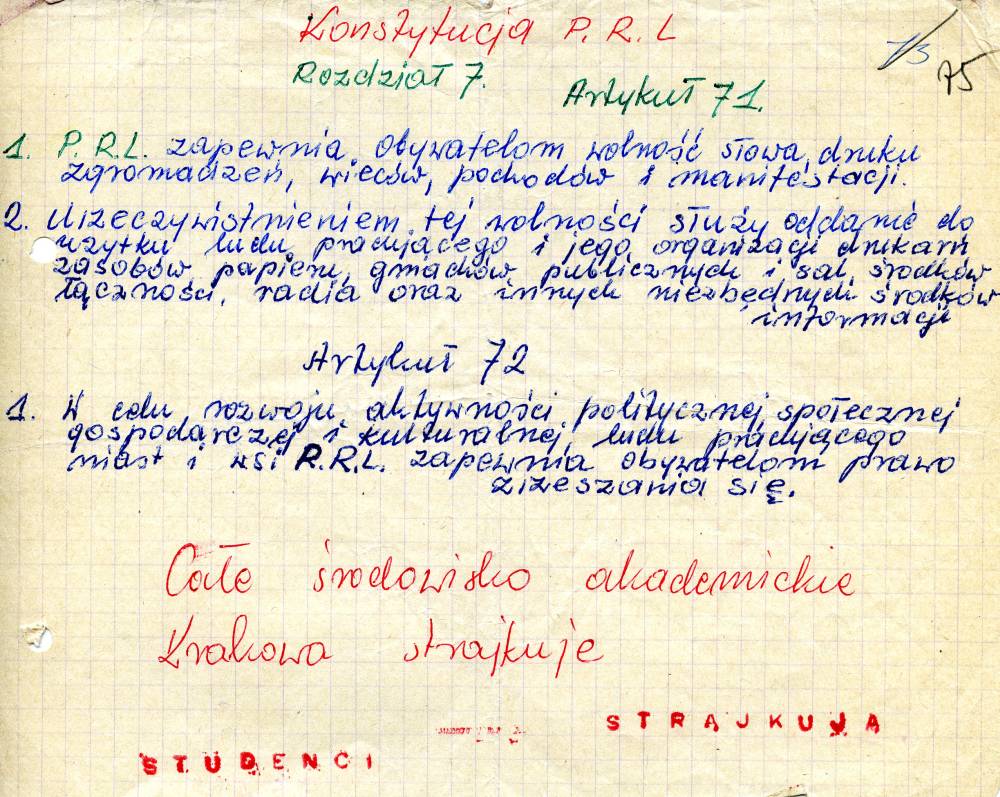 Konstytucja P. R. L
Rozdział 7.
Artykuł 71.
75
1. P.R.L. zapewnia obywatelom wolność słowa, druku
zgromadzeń, wieców, pochodów i manifestacji.
2. Urzeczywistnieniem tej wolności służy oddanie do
użytku ludu pracującego i jego organizacji drukarń
zasobów papieru, gmachów publicznych i sal, środków
łączności, radia oraz innych niezbędnych środków
informacji
Artykuł 72
1. W celu rozwoju aktywności politycznej, społecznej
gospodarczej i kulturalnej, ludu pracującego
miast i wsi P.R.L. zapewnia obywatelom prawo
zrzeszania się.
Całe środowisko akademickie
Krakowa strajkuje
STRAJKUJĄ
STUDENCI